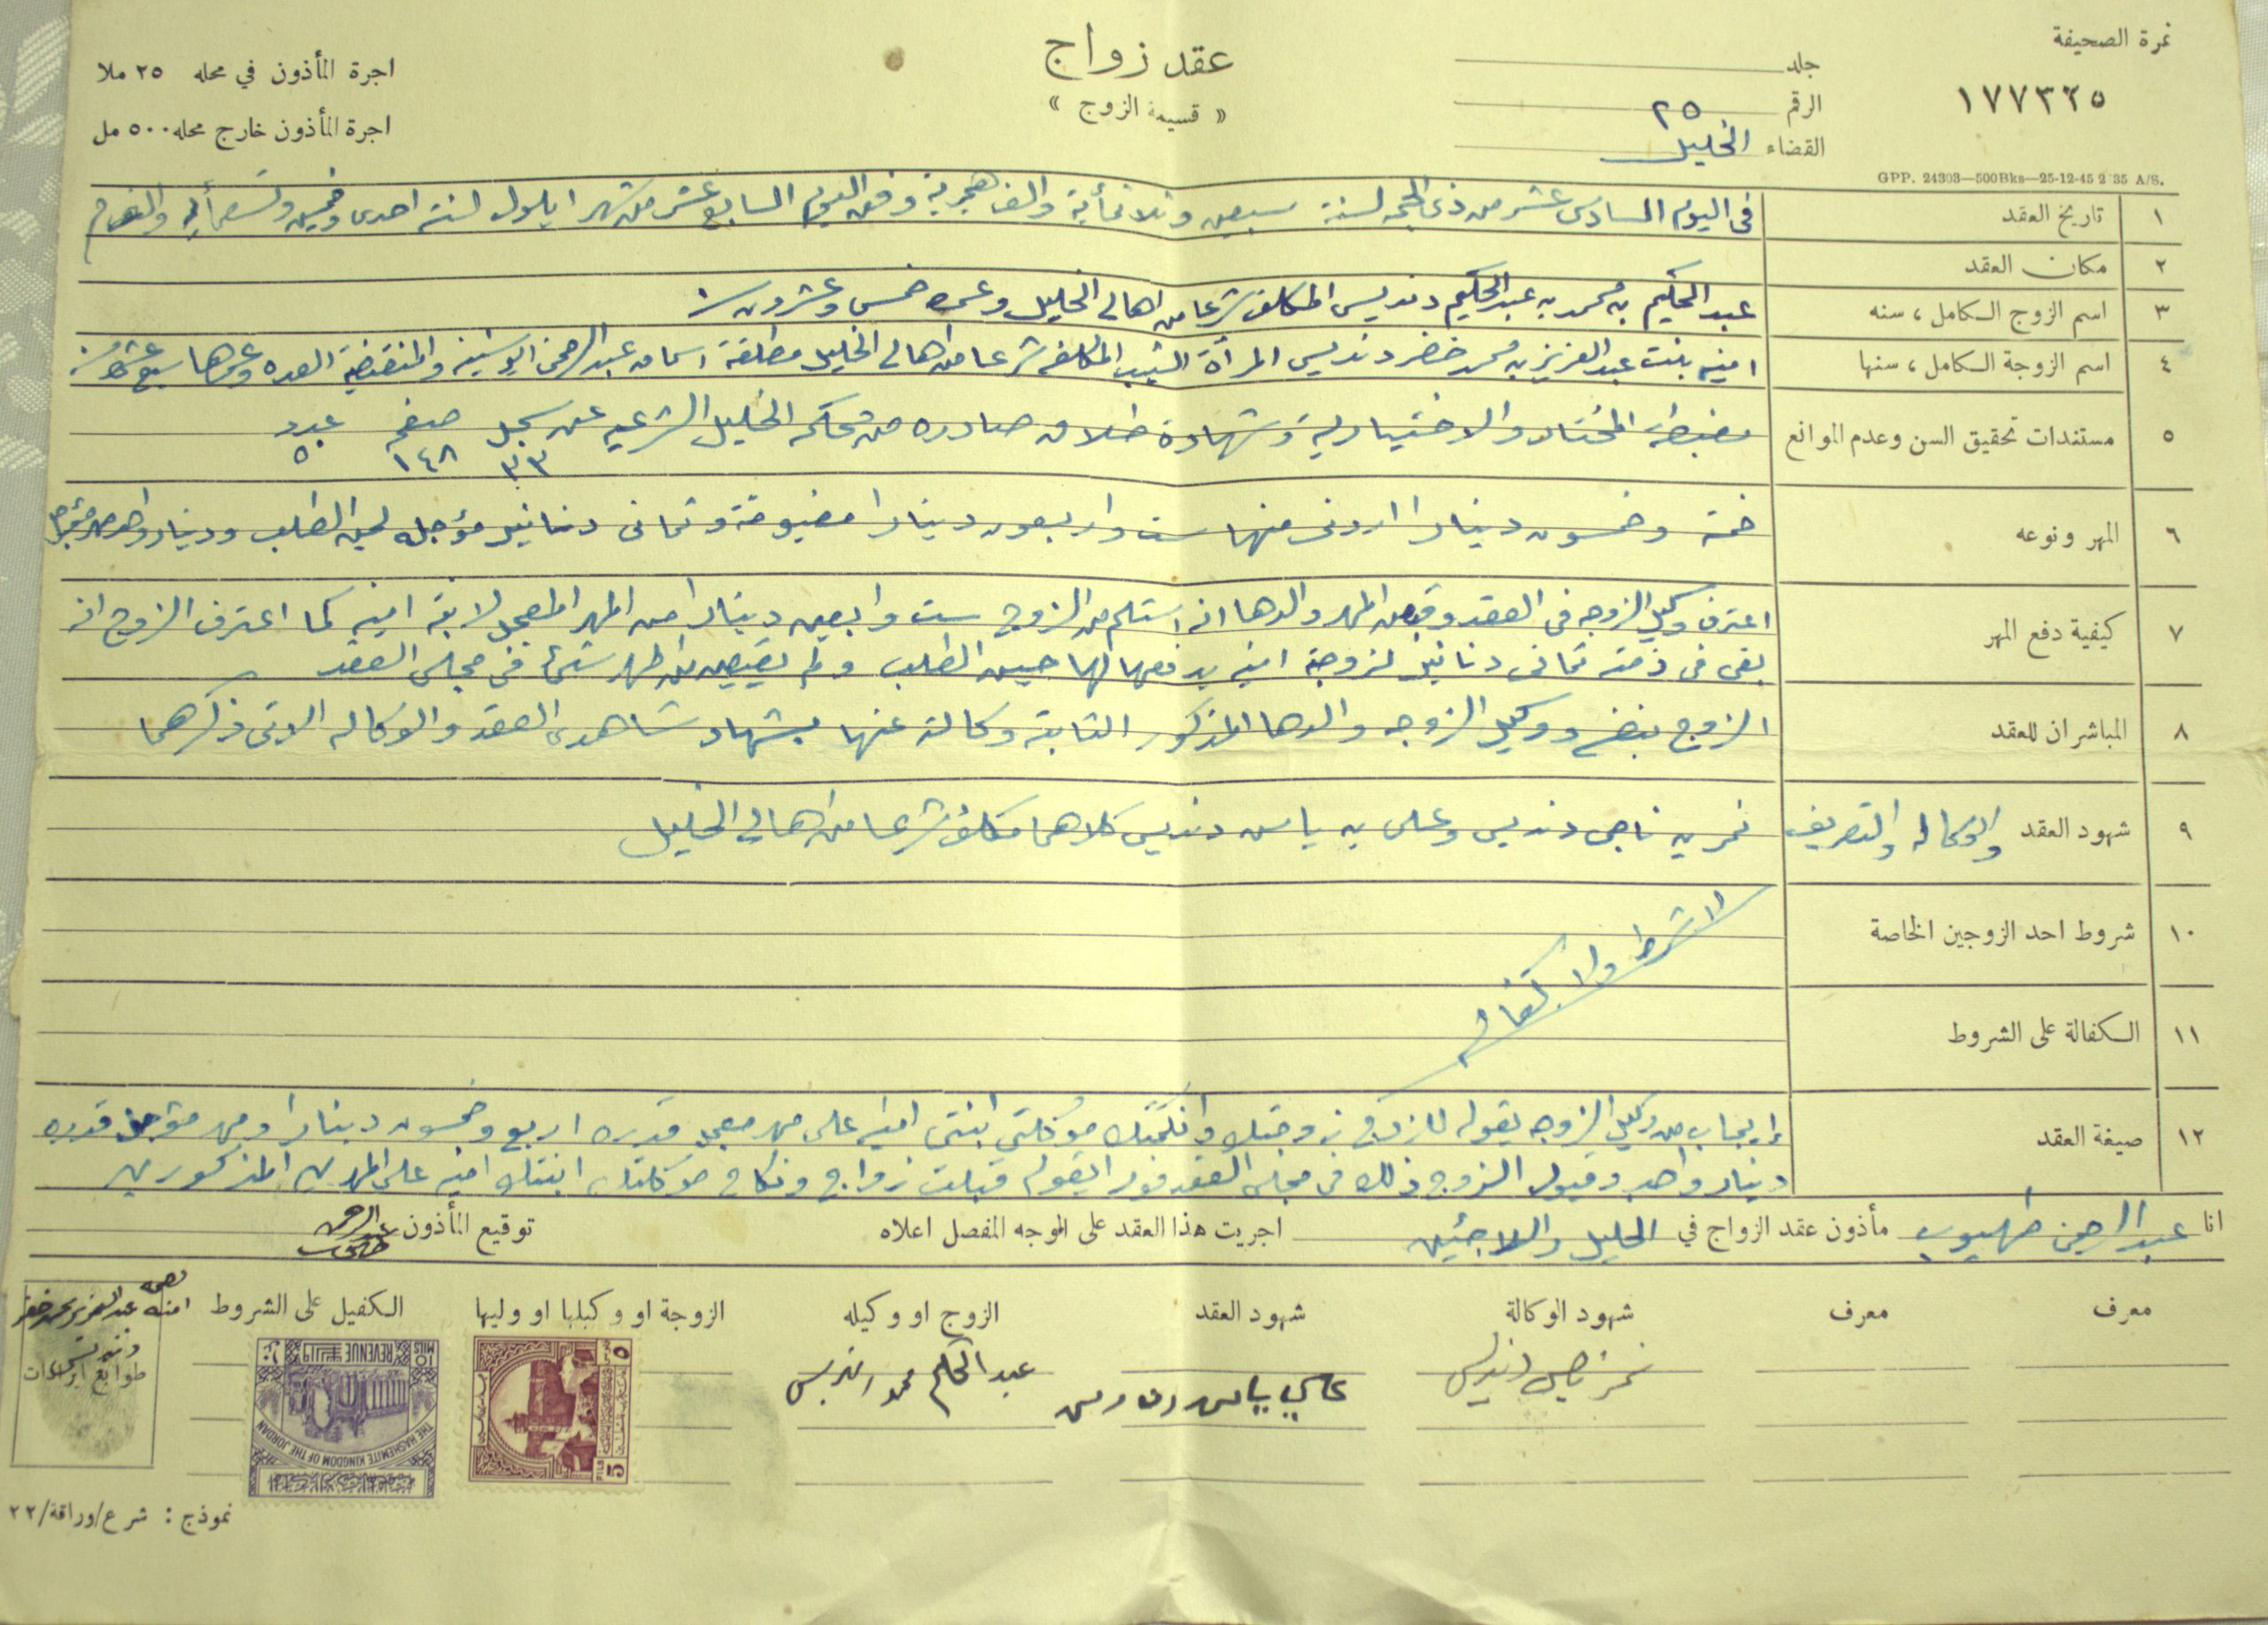 نمرة الصحيفة
١٧٧٣٢٥
جلد
الرقم ٢٥
القضاء الخليل
عقد زواج
« قسيمة الزوج »
اجرة المأذون في محله ٢٥ ملا
اجرة المأذون خارج محله ٥٠٠ مل
GPP. 24303—500Bks—25-12-45 2 35 A/S.
١ تاريخ العقد في اليوم السادس عشر من ذي الحجه لسنة سبعين وثلاثمأية والف هجرية وفق اليوم السابع عشر من شهر ايلول لسنة احدى وخمسين وتسعمأية والف م
٢ مكان العقد
٣ اسم الزوج الكامل ، سنه عبد الحكيم بن محمد بن عبد الحكيم دنديس المكلف شرعا من اهالي الخليل وعمره خمس وعشرون سنة
٤ اسم الزوجة الكامل ، سنها امينه بنت عبد العزيز بن محمد خضر دنديس المرأة الثيب المكلفه شرعا من اهالي الخليل مطلقة عبد الرحمن ابو سنينه والمنقضية العده وعمرها سبع عشر سنة
٥ مستندات تحقيق السن وعدم الموانع مضبطة المختار والاختيارية وشهادة طلاق صادره من محكمة الخليل الشرعيه عن سجل صفحه عدد
٣٣ ١٤٨ ٥
٦ المهر ونوعه خمسة وخمسون دينارا اردني منها ست واربعون دينارا مقبوضة وثماني دنانير مؤجله لحين الطلب ودينار واحد مهر مؤجل
٧ كيفية دفع المهر اعترف وكيل الزوجه في العقد وقبض المهر والدها انه استلم من الزوج ست واربعين دينارا من المهر المعجل لابنته امينه كما اعترف الزوج انه
بقي في ذمته ثماني دنانير لزوجته امينه يدفعها لها حين الطلب ولم يقبض من المهر شيئا في مجلس العقد
٨ المباشران للعقد الزوج بنفسه ووكيل الزوجه والدها المذكور الثابتة وكالته عنها بشهادة شاهدي العقد والوكاله الاتي ذكرهما
٩ شهود العقد والوكاله والتعريف نمر بن ناجي دنديس وعلي بن ياسين دنديس كلاهما مكلف شرعا من اهالي الخليل
١٠ شروط احد الزوجين الخاصة لا شرط ولا كفاله
١١ الكفالة على الشروط
١٢ صيغة العقد إيجاب من وكيل الزوجه بقوله للزوج زوجتك وانكحتك موكلتي ابنتي امينه على مهر معجل قدره اربع وخمسون دينارا ومهر مؤجل قدره
دينار واحد وقبول الزوج ذلك في مجلس العقد فورا بقوله قبلت زواج ونكاح موكلتك ابنتك امينه على المهرين المذكورين
انا عبد الرحمن طهبوب مأذون عقد الزواج في الخليل واللاجئين اجريت هذا العقد على الوجه المفصل اعلاه توقيع المأذون عبد الرحمن طهبوب
معرف معرف شهود الوكالة شهود العقد الزوج او وكيله الزوجة او وكيلها او وليها الكفيل على الشروط
بصمة
امنه عبد العزيز محمد خضر
دنديس
طوابع ايرادات
نمر ناجي دنديس علي ياسين دنديس عبد الحكيم محمد دنديس
10 MILS REVENUE
THE HASHEMITE KINGDOM OF THE JORDAN
5 FILS
نموذج : شرع/وراقة/٢٢